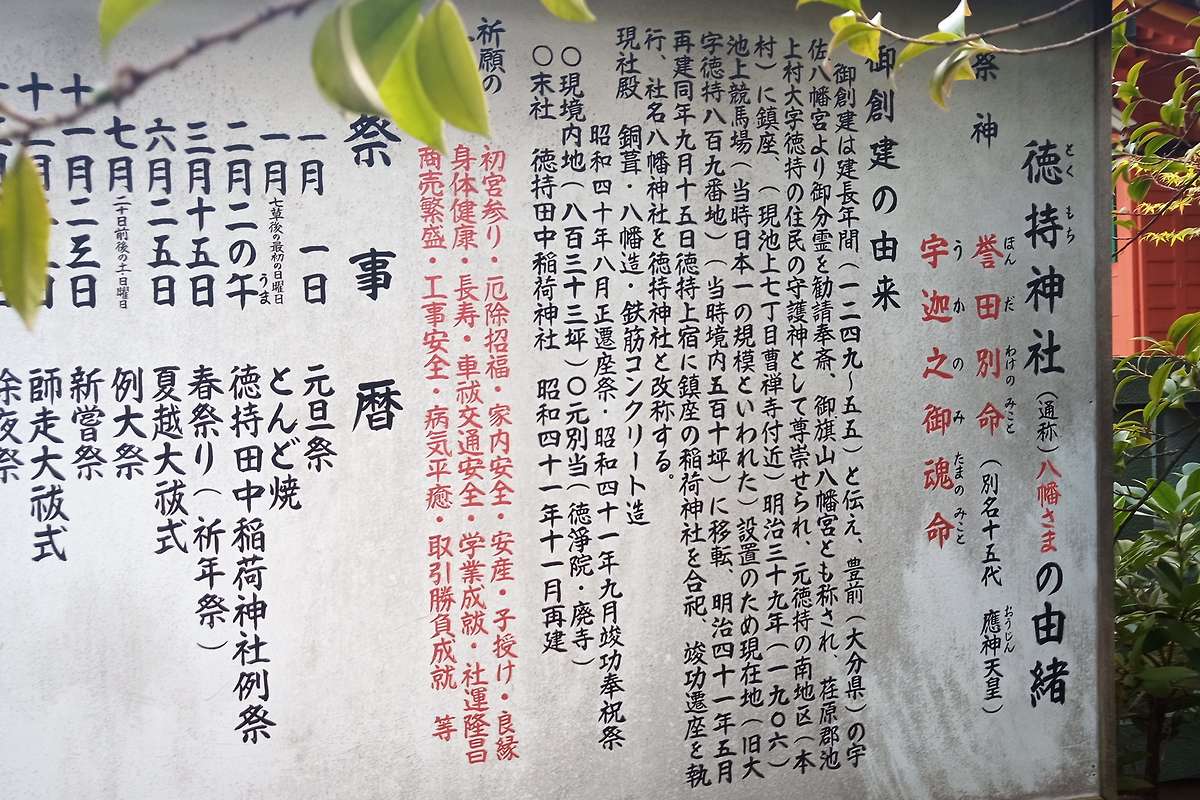 徳持神社（通称）八幡さまの由緒
とく もち
祭神
誉田別命（別名十五代 應神天皇）
ほん だ わけの みこと おうじん
宇迦之御魂命
う か の み たまの みこと
御創建の由来
御創建は建長年間（一二四九～五五）と伝え、豊前（大分県）の宇
佐八幡宮より御分霊を勧請奉斎、御旗山八幡宮とも称され、荏原郡池
上村大字徳持の住民の守護神として尊崇せられ、元徳持の南地区（本
村）に鎮座、（現池上七丁目曹禅寺付近）明治三十九年（一九〇六）
池上競馬場（当時日本一の規模といわれた）設置のため現在地（旧大
字徳持八百九番地）（当時境内五百十坪）に移転、明治四十一年五月
再建同年九月十五日徳持上宿に鎮座の稲荷神社を合祀、竣功遷座を執
行、社名八幡神社を徳持神社と改称する。
現社殿 銅葺・八幡造・鉄筋コンクリート造
昭和四十年八月正遷座祭・昭和四十一年九月竣功奉祝祭
〇現境内地（八百三十三坪）〇元別当（徳浄院・廃寺）
〇末社 徳持田中稲荷神社 昭和四十一年十一月再建
祈願の
初宮参り・厄除招福・家内安全・安産・子授け・良縁
身体健康・長寿・車祓交通安全・学業成就・社運隆昌
商売繁盛・工事安全・病気平癒・取引勝負成就 等
祭事暦
一月 一日 元旦祭
一月 七草後の最初の日曜日 とんど焼
二月二の午 徳持田中稲荷神社例祭
うま
三月十五日 春祭り（祈年祭）
六月二五日 夏越大祓式
七月 二十日前後の土・日曜日 例大祭
十一月二三日 新嘗祭
師走大祓式
除夜祭